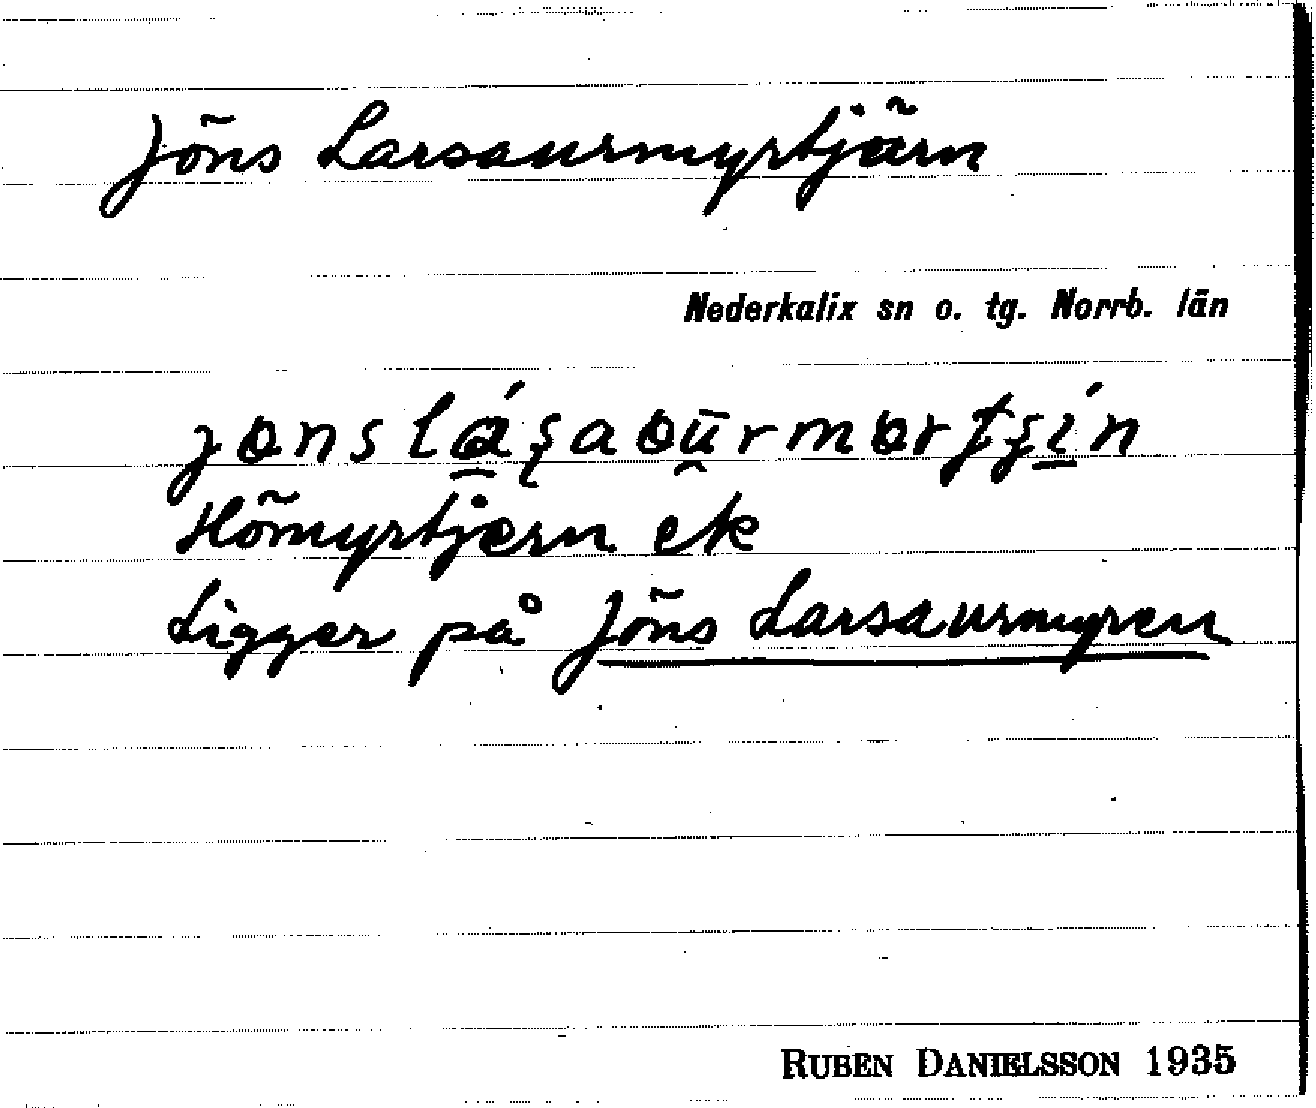 Jöns Larsaurmyrtjärn
Nederkalix sn o. tg. Norrb. län
Hömyrtjern ek
Ligger på Jöns Larsaurmyren
RUBEN DANIELSSON 1935